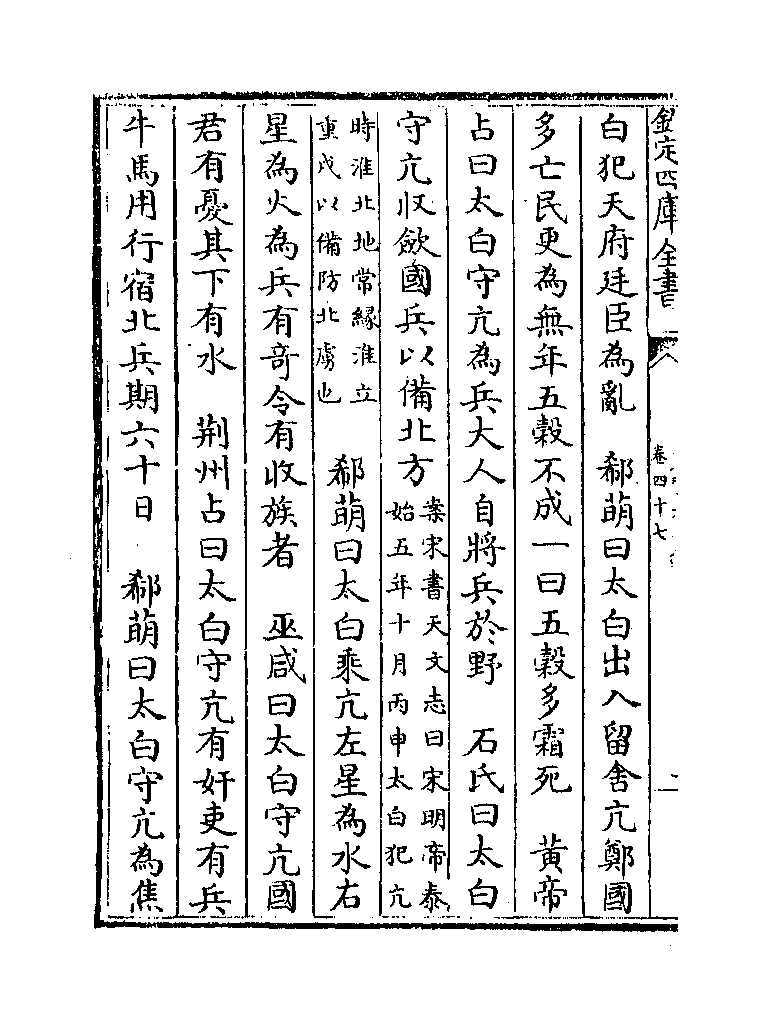 欽定四庫全書
卷四十七
白犯天府廷臣為亂　郗萌曰太白出入留舍亢鄭國
多亡民更為無年五穀不成一曰五穀多霜死　黃帝
占曰太白守亢為兵大人自將兵於野　石氏曰太白
守亢収歛國兵以備北方
案宋書天文志曰宋明帝泰
始五年十月丙申太白犯亢
時淮北地常緣淮立
重戍以備防北虜也
郗萌曰太白乘亢左星為水右
星為火為兵有奇令有收族者　巫咸曰太白守亢國
君有憂其下有水　荆州占曰太白守亢有奸吏有兵
牛馬用行宿北兵期六十日　郗萌曰太白守亢為焦